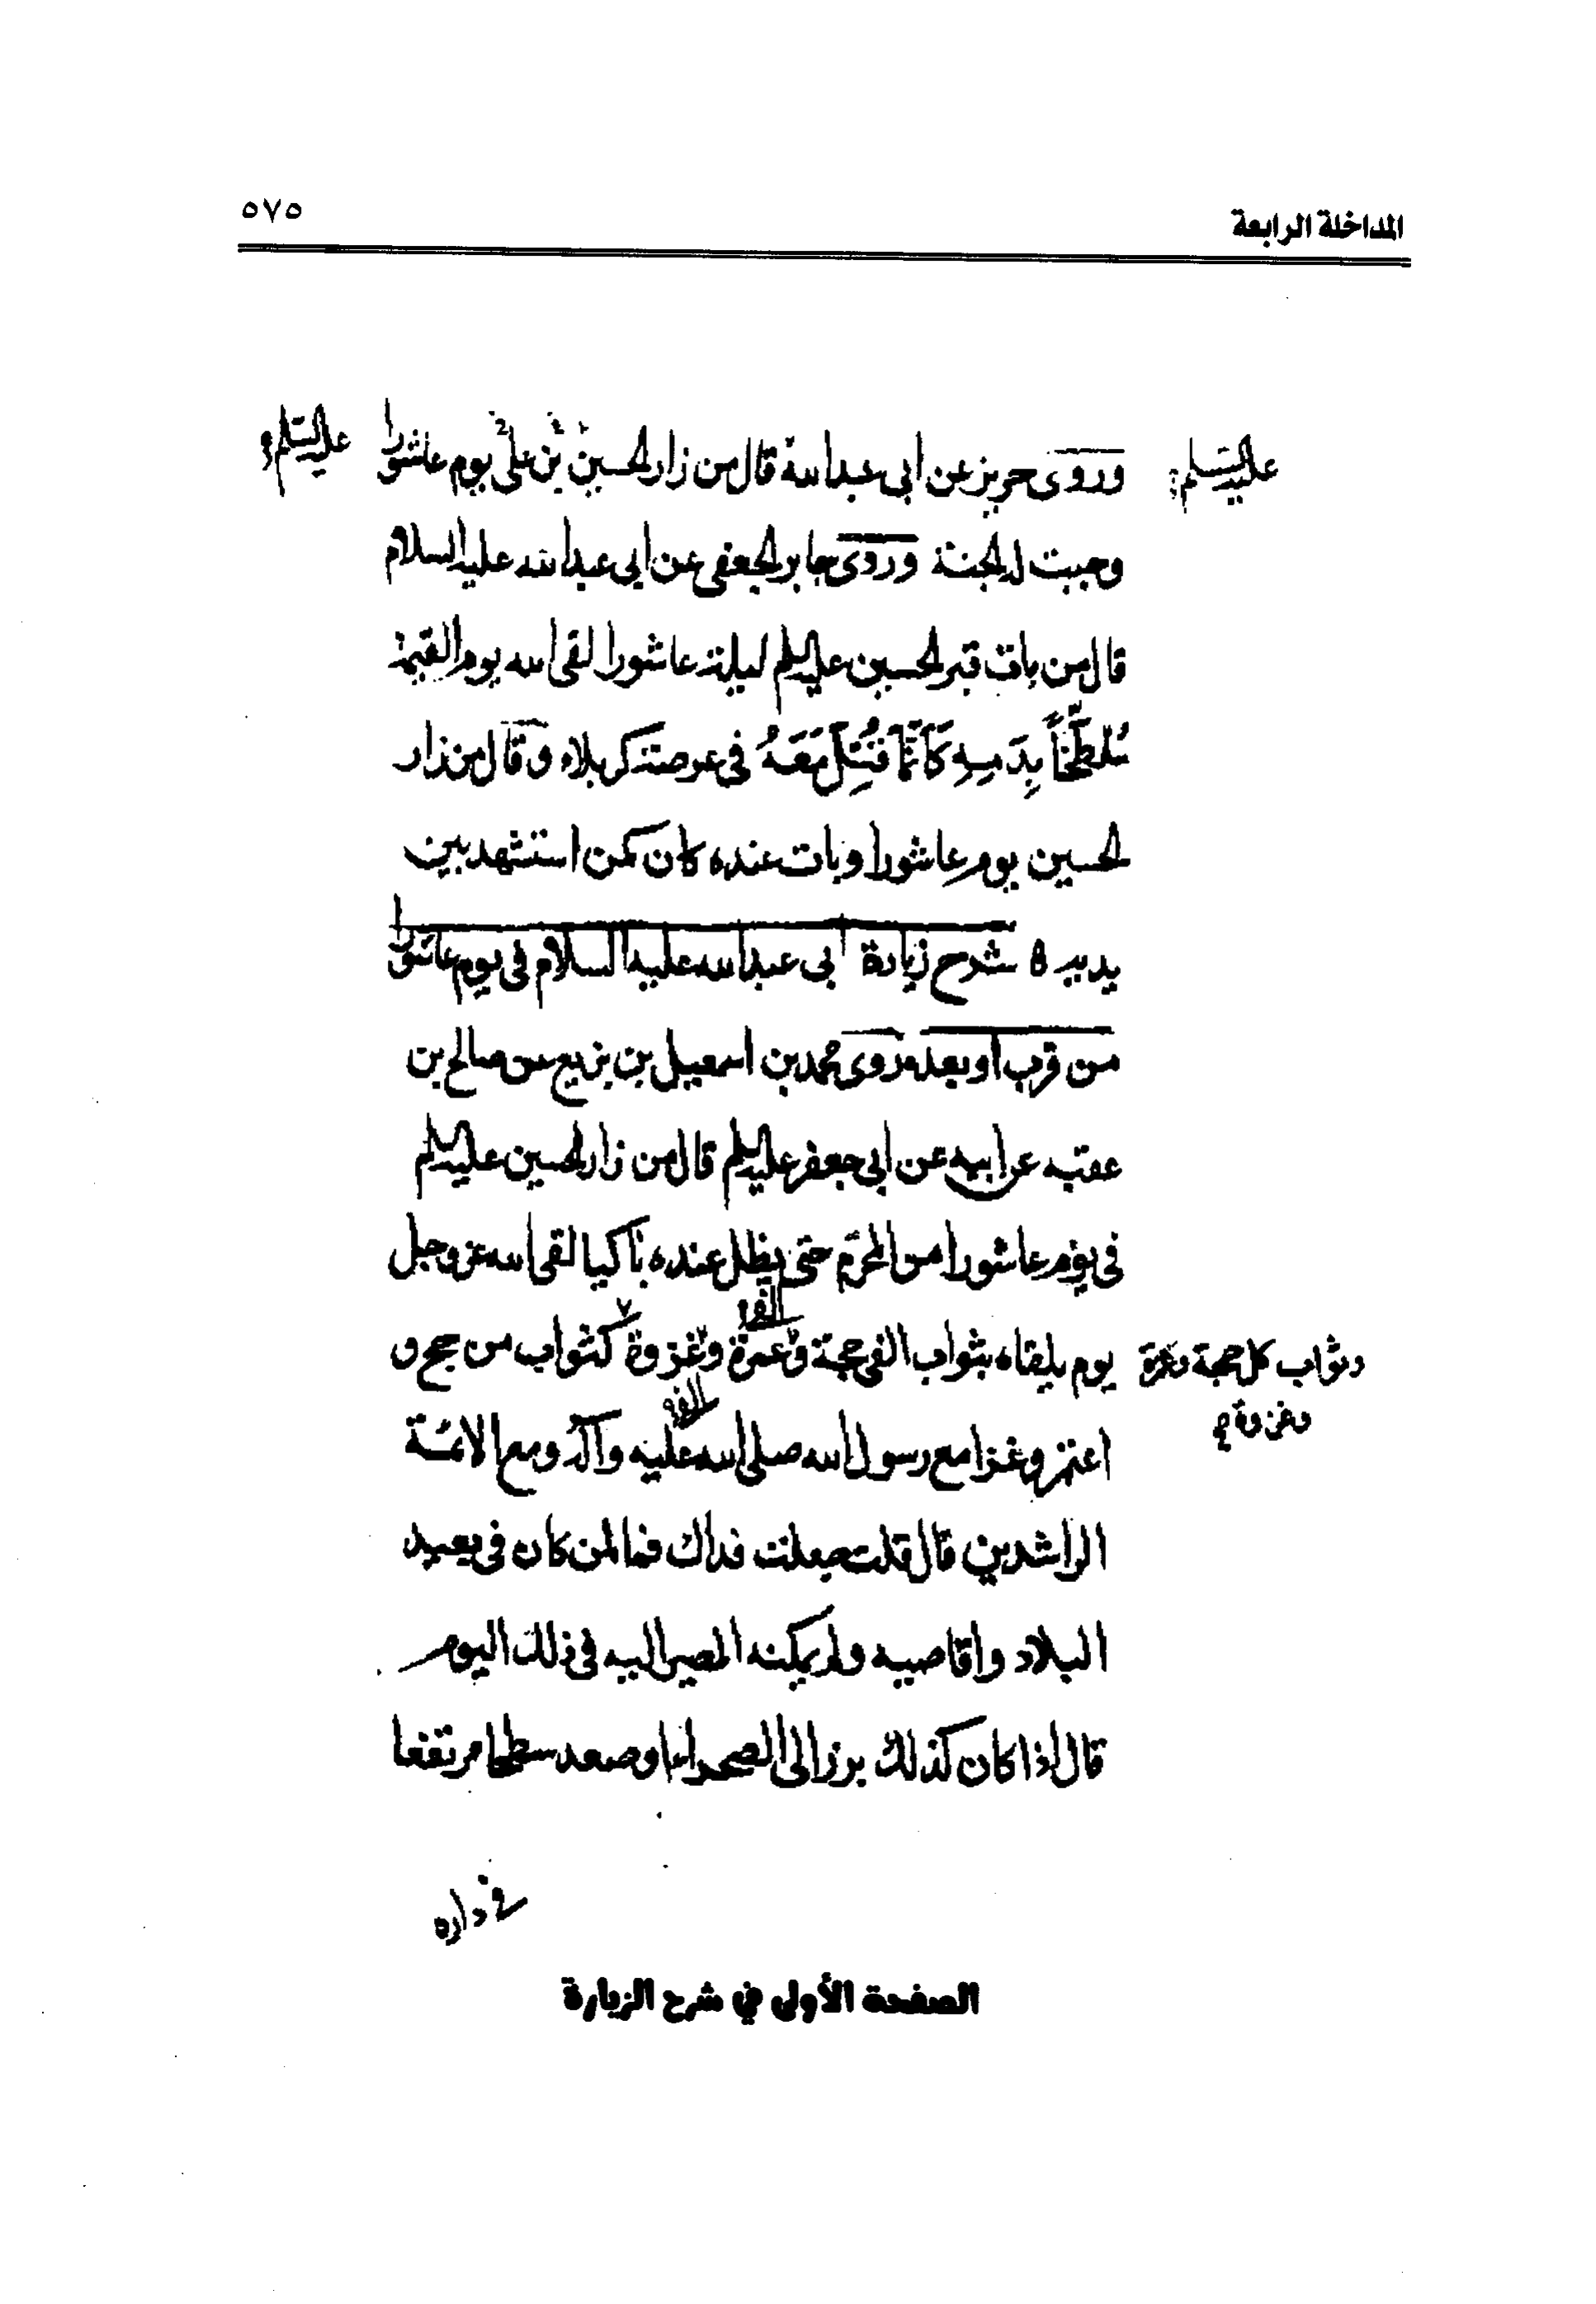 المداخلة الرابعة
٥٧٥
عليه السلم
وروى حريز عن ابى عبدالله قال من زار الحسين بن على يوم عاشورا
عليه السلم
وجبت له الجنة وروى جابر الجعفى عن ابى عبدالله عليه السلام
قال من بات قبر الحسين عليه السلم ليلة عاشورا لقى الله يوم القيمة
مُلَطَّخاً بِدَمِهِ كَأَنَّمَا قُتِلَ مَعَهُ فى عرصة كربلاء وقال من زار
الحسين يوم عاشورا وبات عنده كان كمن استشهد بين
يديه ه شرح زيارة ابى عبدالله عليه السلام فى يوم عاشورا
من قرب او بعد روى محمد بن اسمعيل بن بزيع عن صالح بن
عقبه عن ابيه عن ابى جعفر عليه السلم قال من زار الحسين عليه السلم
فى يوم عاشورا من المحرّم حتى يظل عنده باكيا لقى الله عز وجل
يوم يلقاه بثواب الفى حجة وعمرة وغزوة كثواب من حج و
الفى
وثواب كل حجة وعمرة
وغزوة
الفى
اعتمر وغزا مع رسول الله صلى الله عليه وآله ومع الائمّة
الراشدين قال قلت جعلت فداك فما لمن كان فى بعيد
البلاد واقاصيه ولم يمكنه المصير اليه فى ذلك اليوم
قال اذا كان كذلك برز الى الصحراء او صعد سطحا مرتفعا
فى داره
الصفحة الأولى في شرح الزيارة